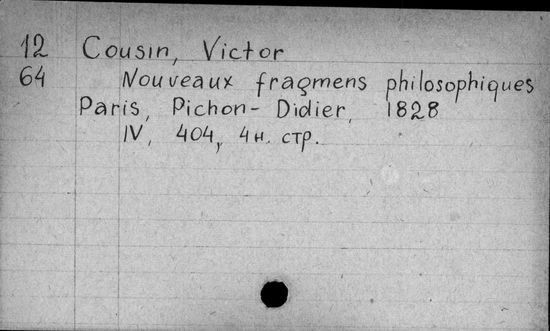 12 Cousin, Victor
64 Nouveaux fragmens philosophiques
Paris, Pichon-Didier, 1828
IV, 404, 4 н. стр.